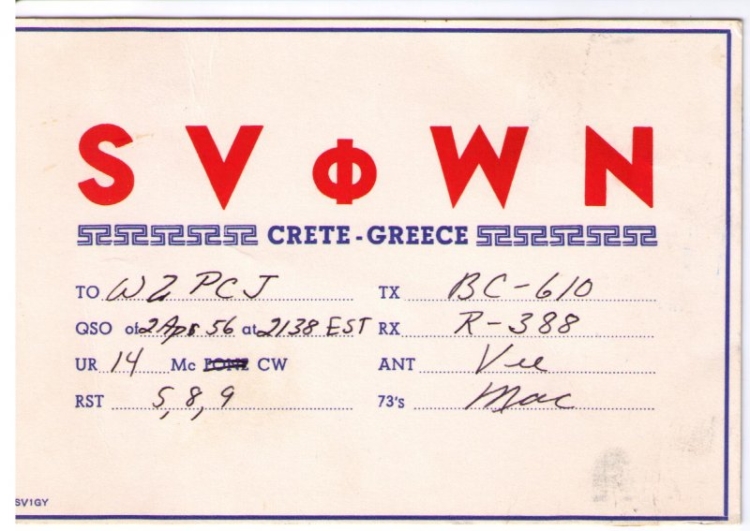 SVΦWN
CRETE-GREECE
TO W2PCJ TX BC-610
QSO of 2 Apr 56 at 2138 EST RX R-388
UR 14 Mc CW ANT Vee
RST 5,8,9 73's Mac
SV1GY